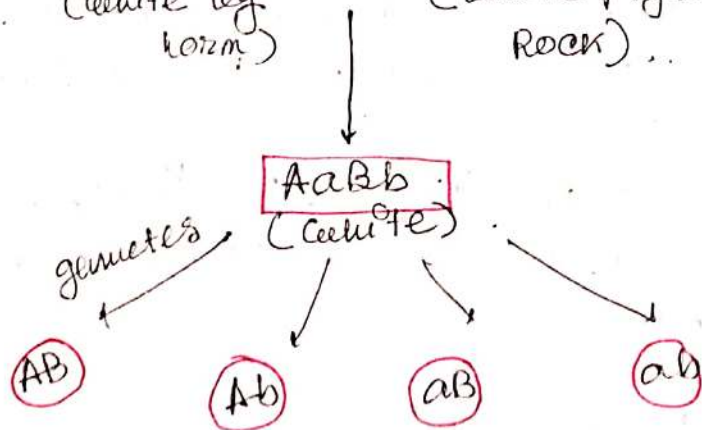 (white leg
horn)
ROCK)..
AaBb
(white)
gametes
AB Ab aB ab